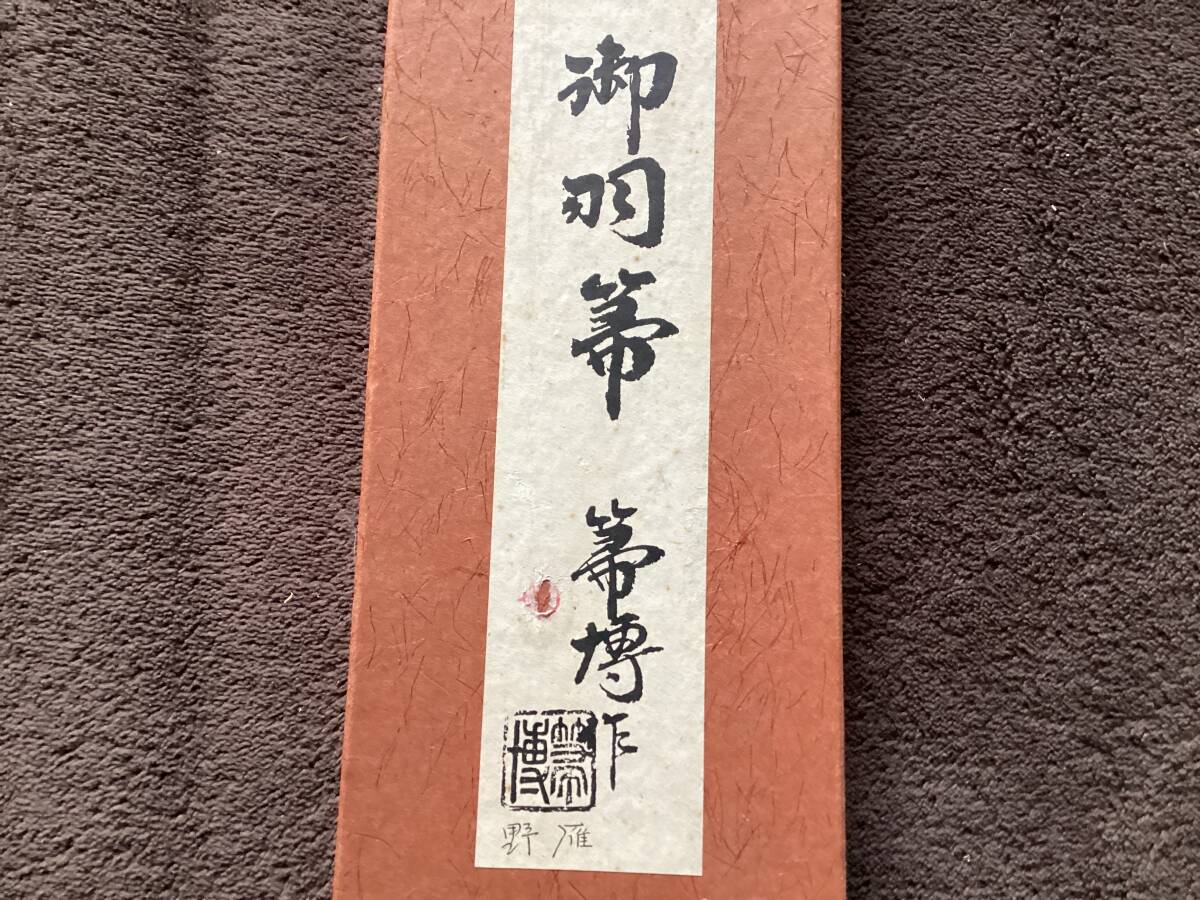 御羽箒
箒博作
箒博
野雁